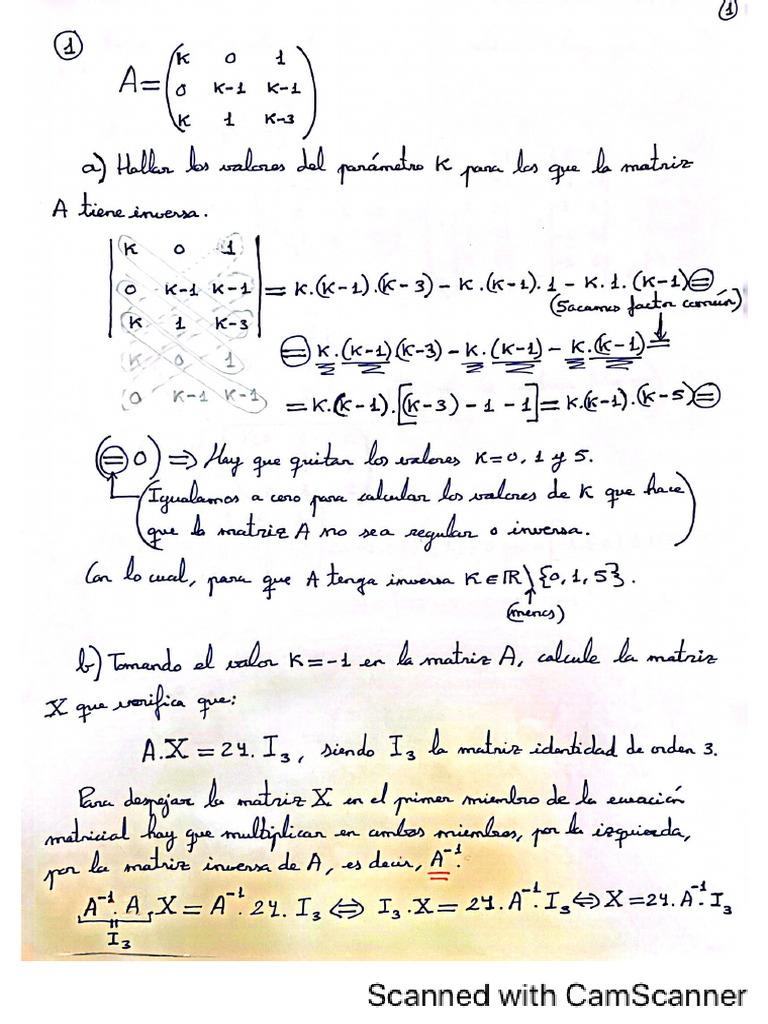 1
1
A = ( K 0 1
0 K-1 K-1
K 1 K-3 )
a) Hallar los valores del parámetro K para los que la matriz
A tiene inversa.
| K 0 1 |
| 0 K-1 K-1 | = K.(K-1).(K-3) - K.(K-1).1 - K.1.(K-1) =
(Sacamos factor común)
| K 1 K-3 |
K 0 1
= K.(K-1)(K-3) - K.(K-1) - K.(K-1) =
0 K-1 K-1
= K.(K-1).[(K-3) - 1 - 1] = K.(K-1).(K-5) =
(= 0) ⇒ Hay que quitar los valores K=0, 1 y 5.
(Igualamos a cero para calcular los valores de K que hace
que la matriz A no sea regular o inversa.)
Con lo cual, para que A tenga inversa K ∈ ℝ \ {0, 1, 5}.
(menos)
b) Tomando el valor K=-1 en la matriz A, calcule la matriz
X que verifica que:
A.X = 24. I₃, siendo I₃ la matriz identidad de orden 3.
Para despejar la matriz X en el primer miembro de la ecuación
matricial hay que multiplicar en ambos miembros, por la izquierda,
por la matriz inversa de A, es decir, A⁻¹.
A⁻¹. A . X = A⁻¹. 24. I₃ ⇔ I₃ . X = 24. A⁻¹. I₃ ⇔ X = 24. A⁻¹. I₃
I₃
Scanned with CamScanner